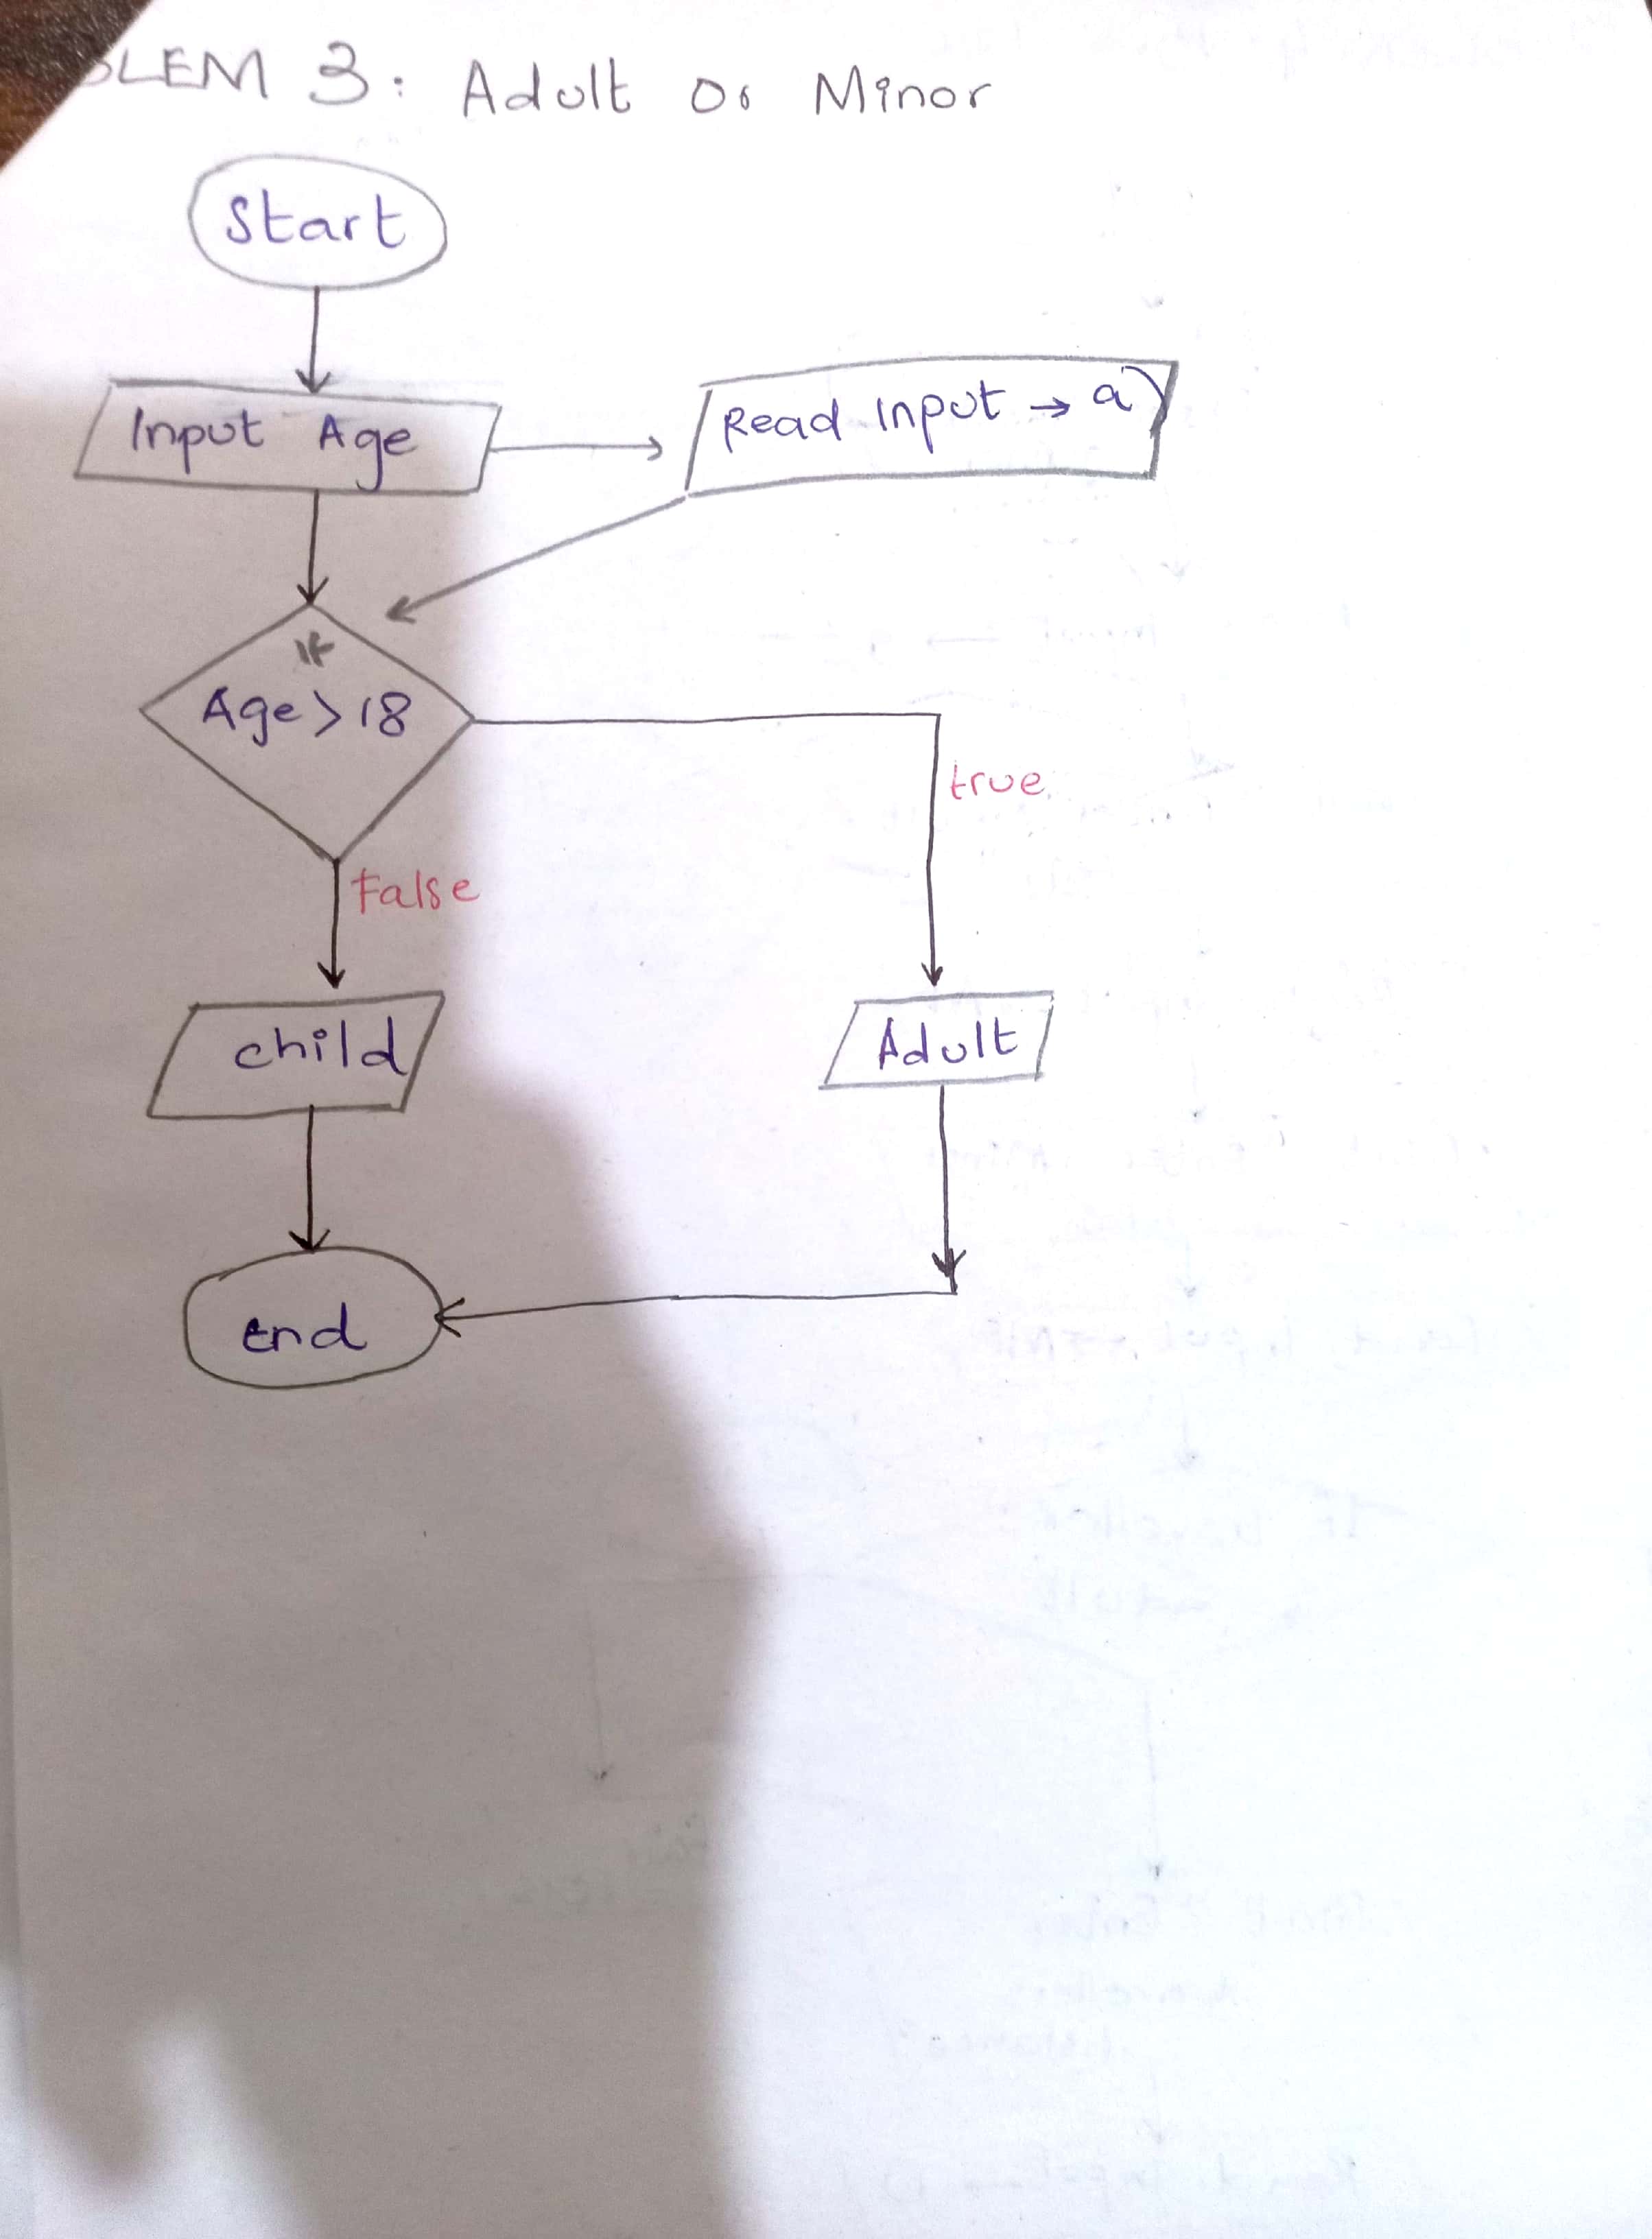 BLEM 3: Adult Or Minor
Start
Input Age
Read Input → a
If
Age > 18
true
False
child
Adult
End